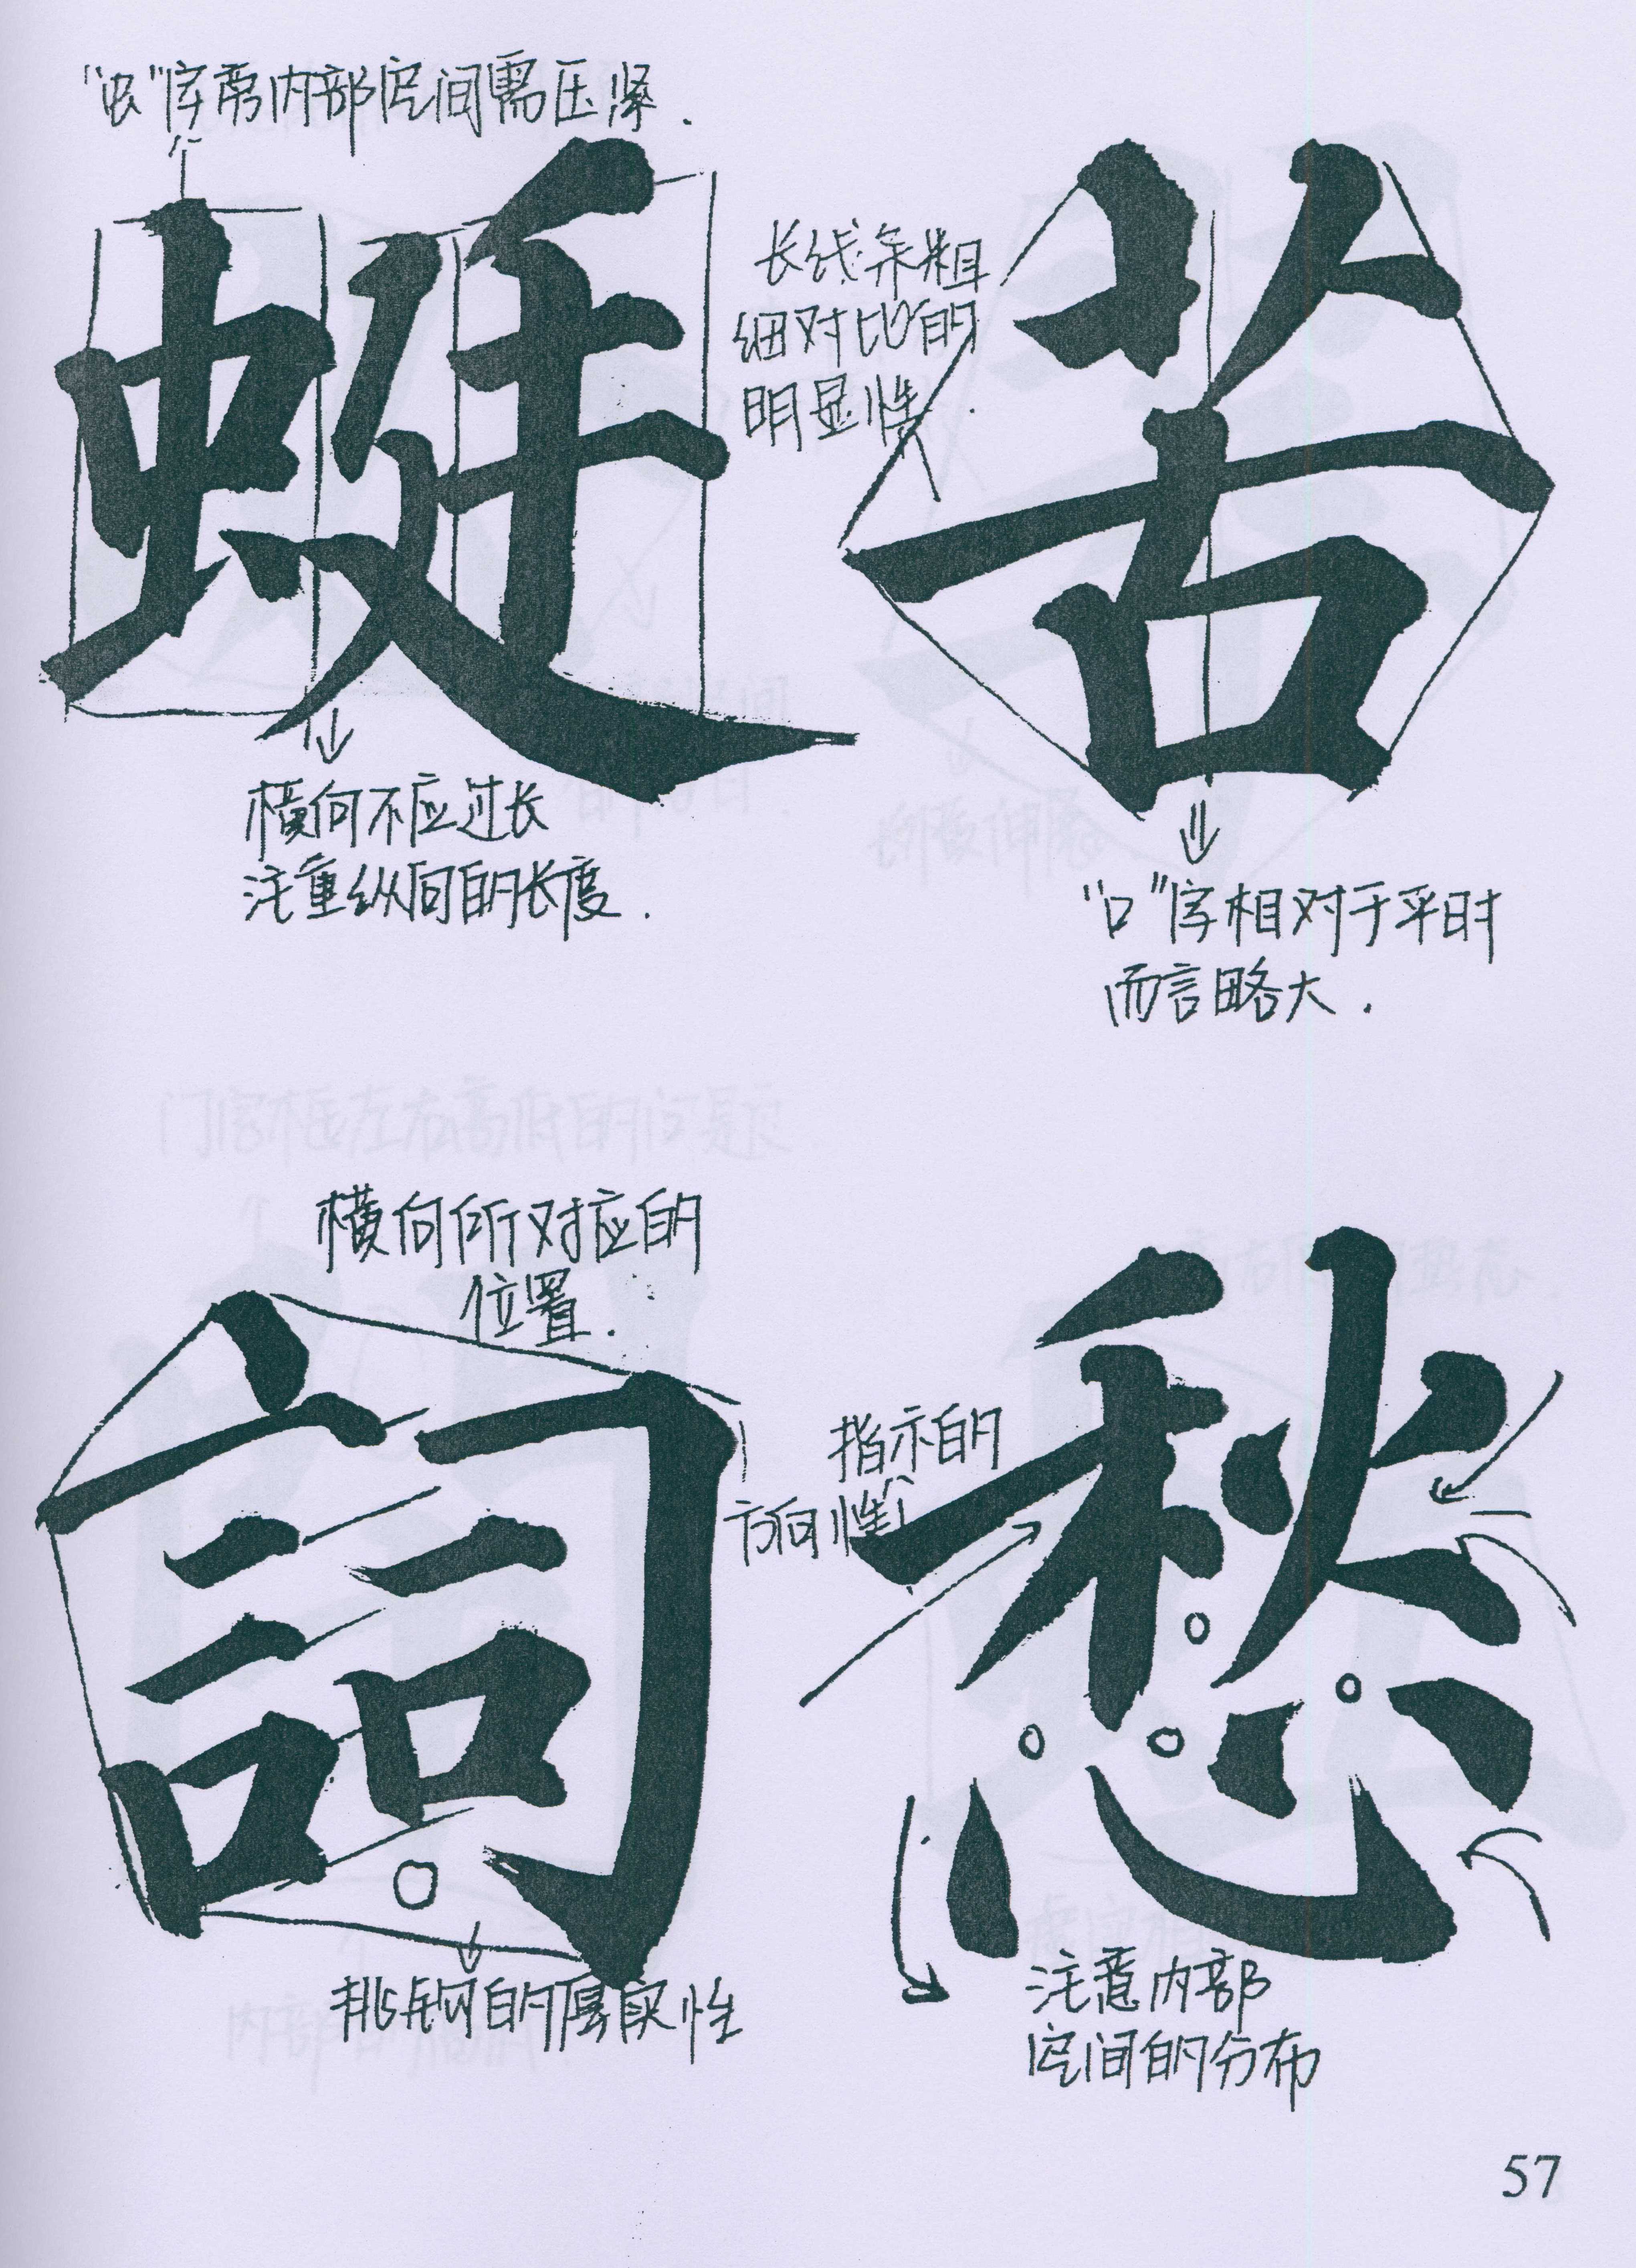 “虫”字旁内部空间需压紧.
蜓
横向不应过长
注重纵向的长度.
长线条粗
细对比的
明显性.
苦
“口”字相对于平时
而言略大.
横向所对应的
位置.
詞
挑钩的厚实性
指示的
方向性
愁
注意内部
空间的分布
57